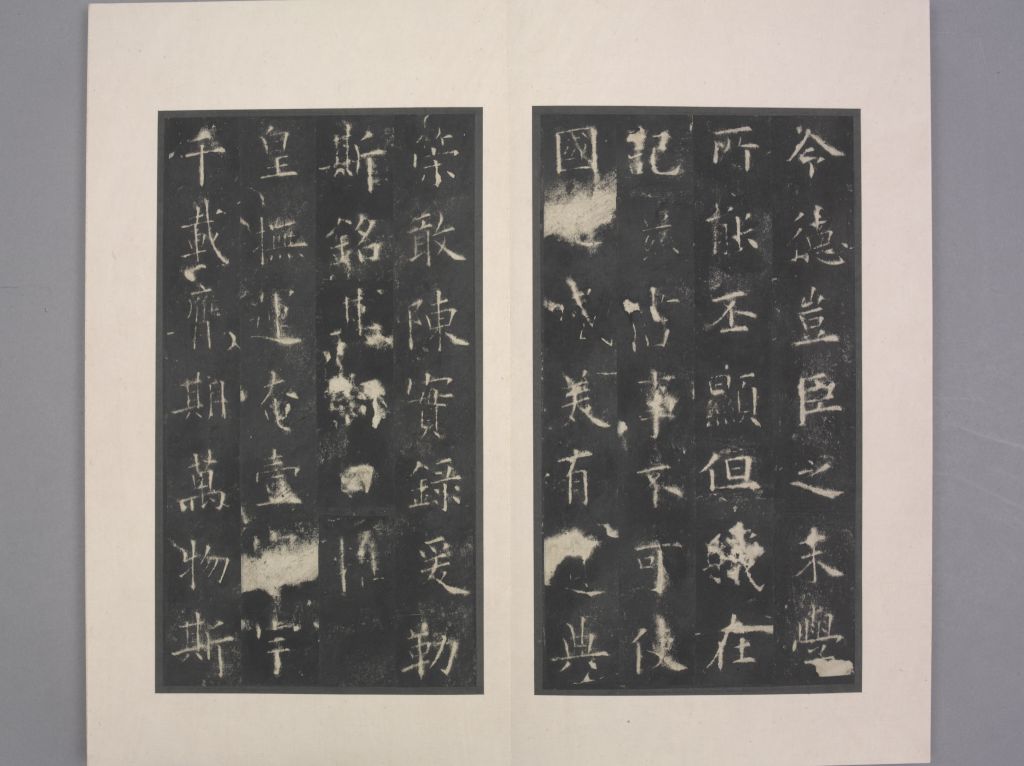 令德豈臣之末學
所能丕顯但職在
記事不可使
國盛美有典
策敢陳實錄爰勒
斯銘曰惟
皇撫運奄壹宇
千載膺期萬物斯